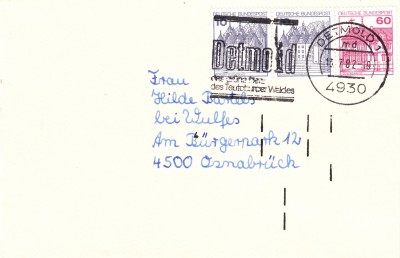 DEUTSCHE BUNDESPOST DEUTSCHE BUNDESPOST DEUTSCHE BUNDESPOST
10 60
DETMOLD 1
md
4930
Detmold
des Teutoburger Waldes
Frau
Hilde Bartels
bei Wulfes
Am Bürgerpark 12
4500 Osnabrück